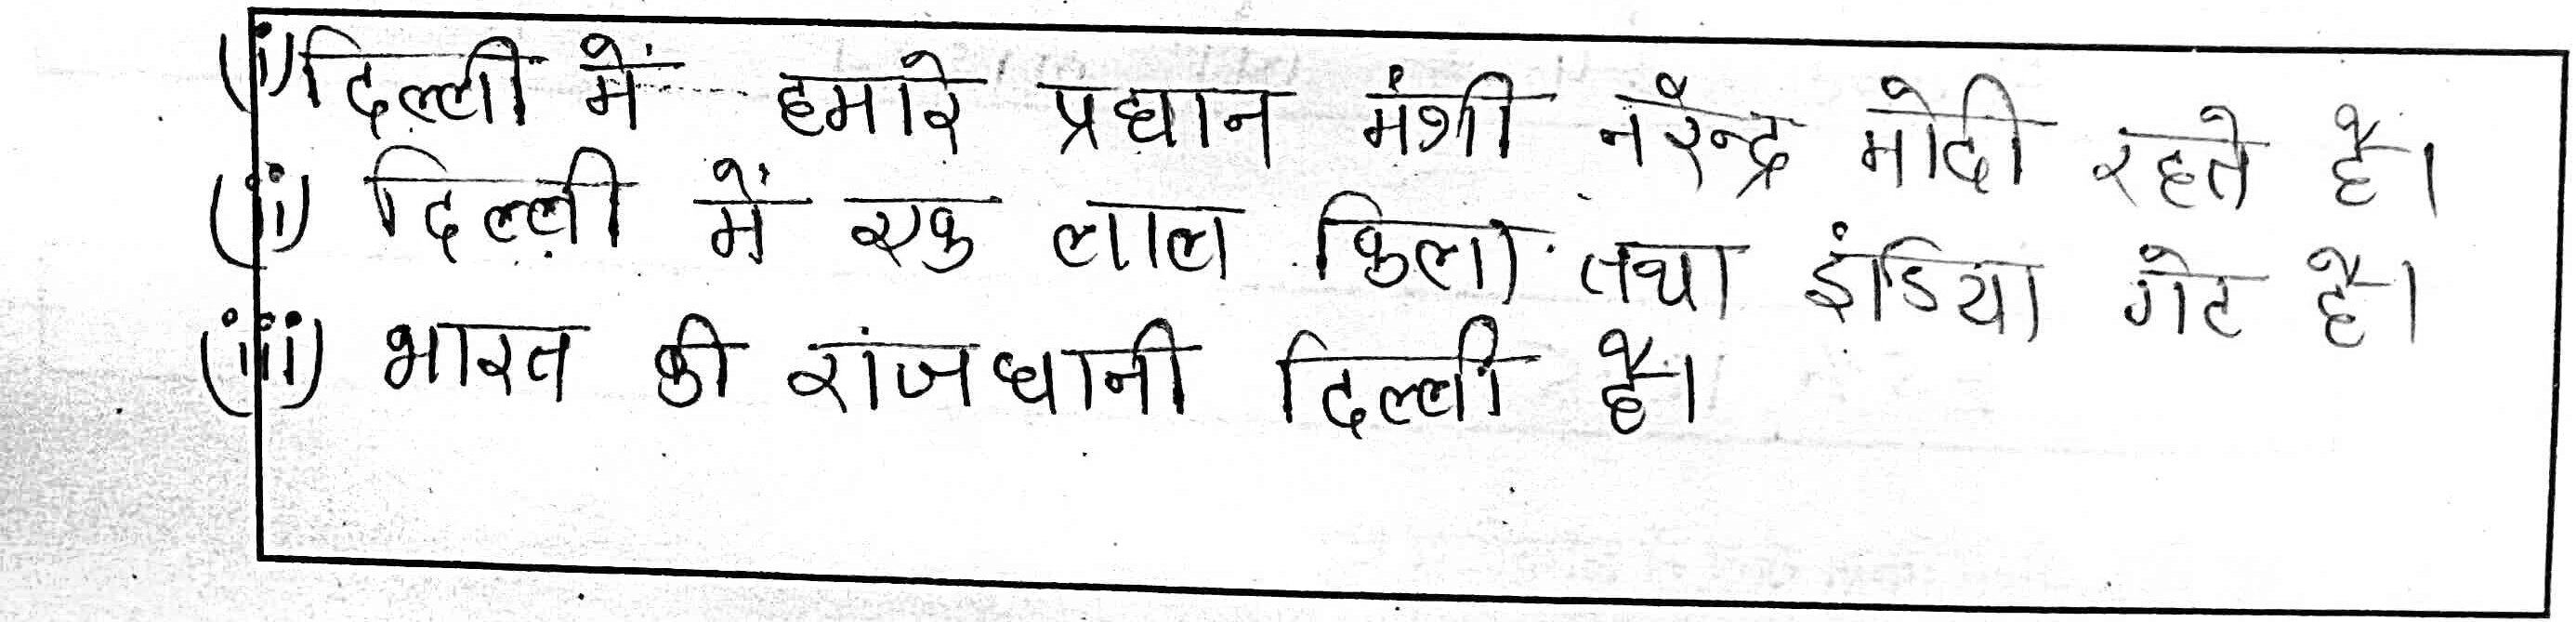 (i) दिल्ली में हमारे प्रधान मंत्री नरेन्द्र मोदी रहते है।
(ii) दिल्ली में एक लाल किला तथा इंडिया गेट है।
(iii) भारत की राजधानी दिल्ली है।